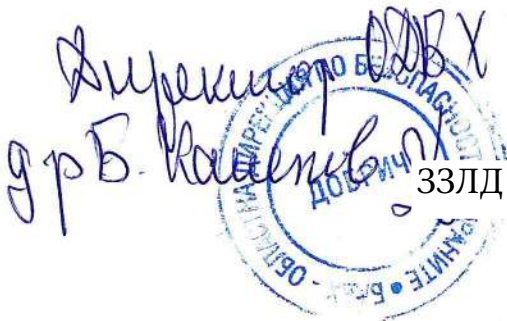 Директор ОДБХ
д-р Б. Каменов
ЗЗЛД
ОБЛАСТНА ДИРЕКЦИЯ ПО БЕЗОПАСНОСТ НА ХРАНИТЕ • БАБХ -
ДОБРИЧ